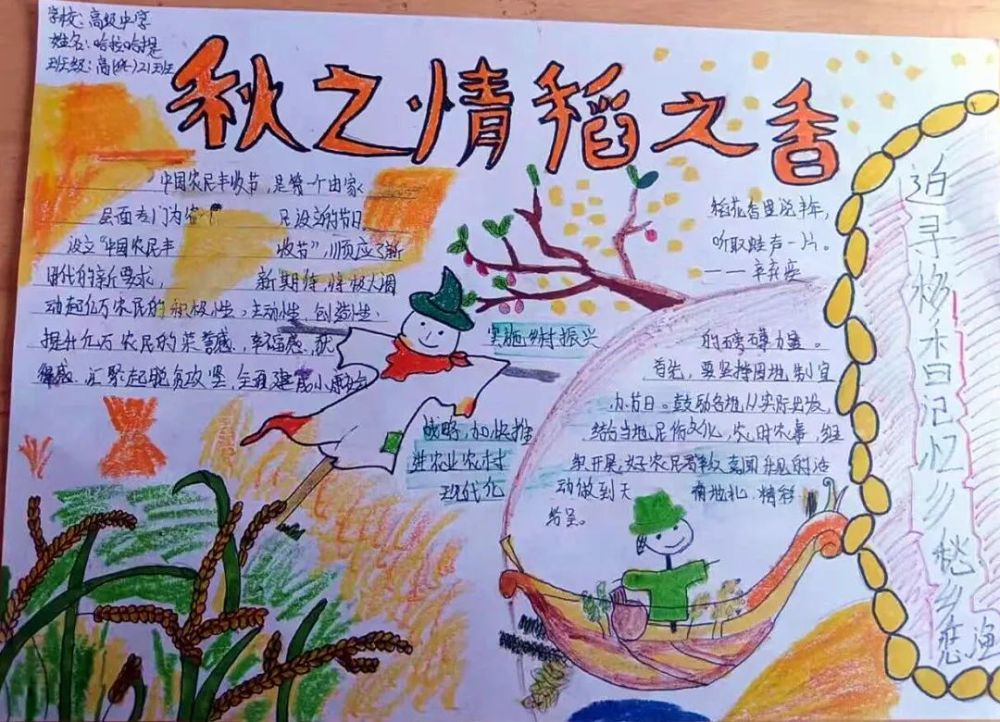 学校：高级中学
姓名：哈拉哈提
班级：高(2)21班
秋之情稻之香
中国农民丰收节，是第一个由家
层面专门为农 民设立的节日。
设立“中国农民丰 收节”，顺应了新
时代的新要求， 新期待，将极大调
动起亿万农民的积极性、主动性、创造性、
提升亿万农民的荣誉感、幸福感、获
得感。汇聚起脱贫攻坚、全面建成小康社会
稻花香里说丰年，
听取蛙声一片。
——辛弃疾
实施乡村振兴
战略，加快推
进农业农村
现代化
的磅礴力量。
首先，要坚持因地制宜
办节日。鼓励各地从实际出发，
结合当地民俗文化、农时农事，组
织开展好农民 的活
动做到天 有地札，精彩
纷呈。
追寻 日记忆乡愁乡恋